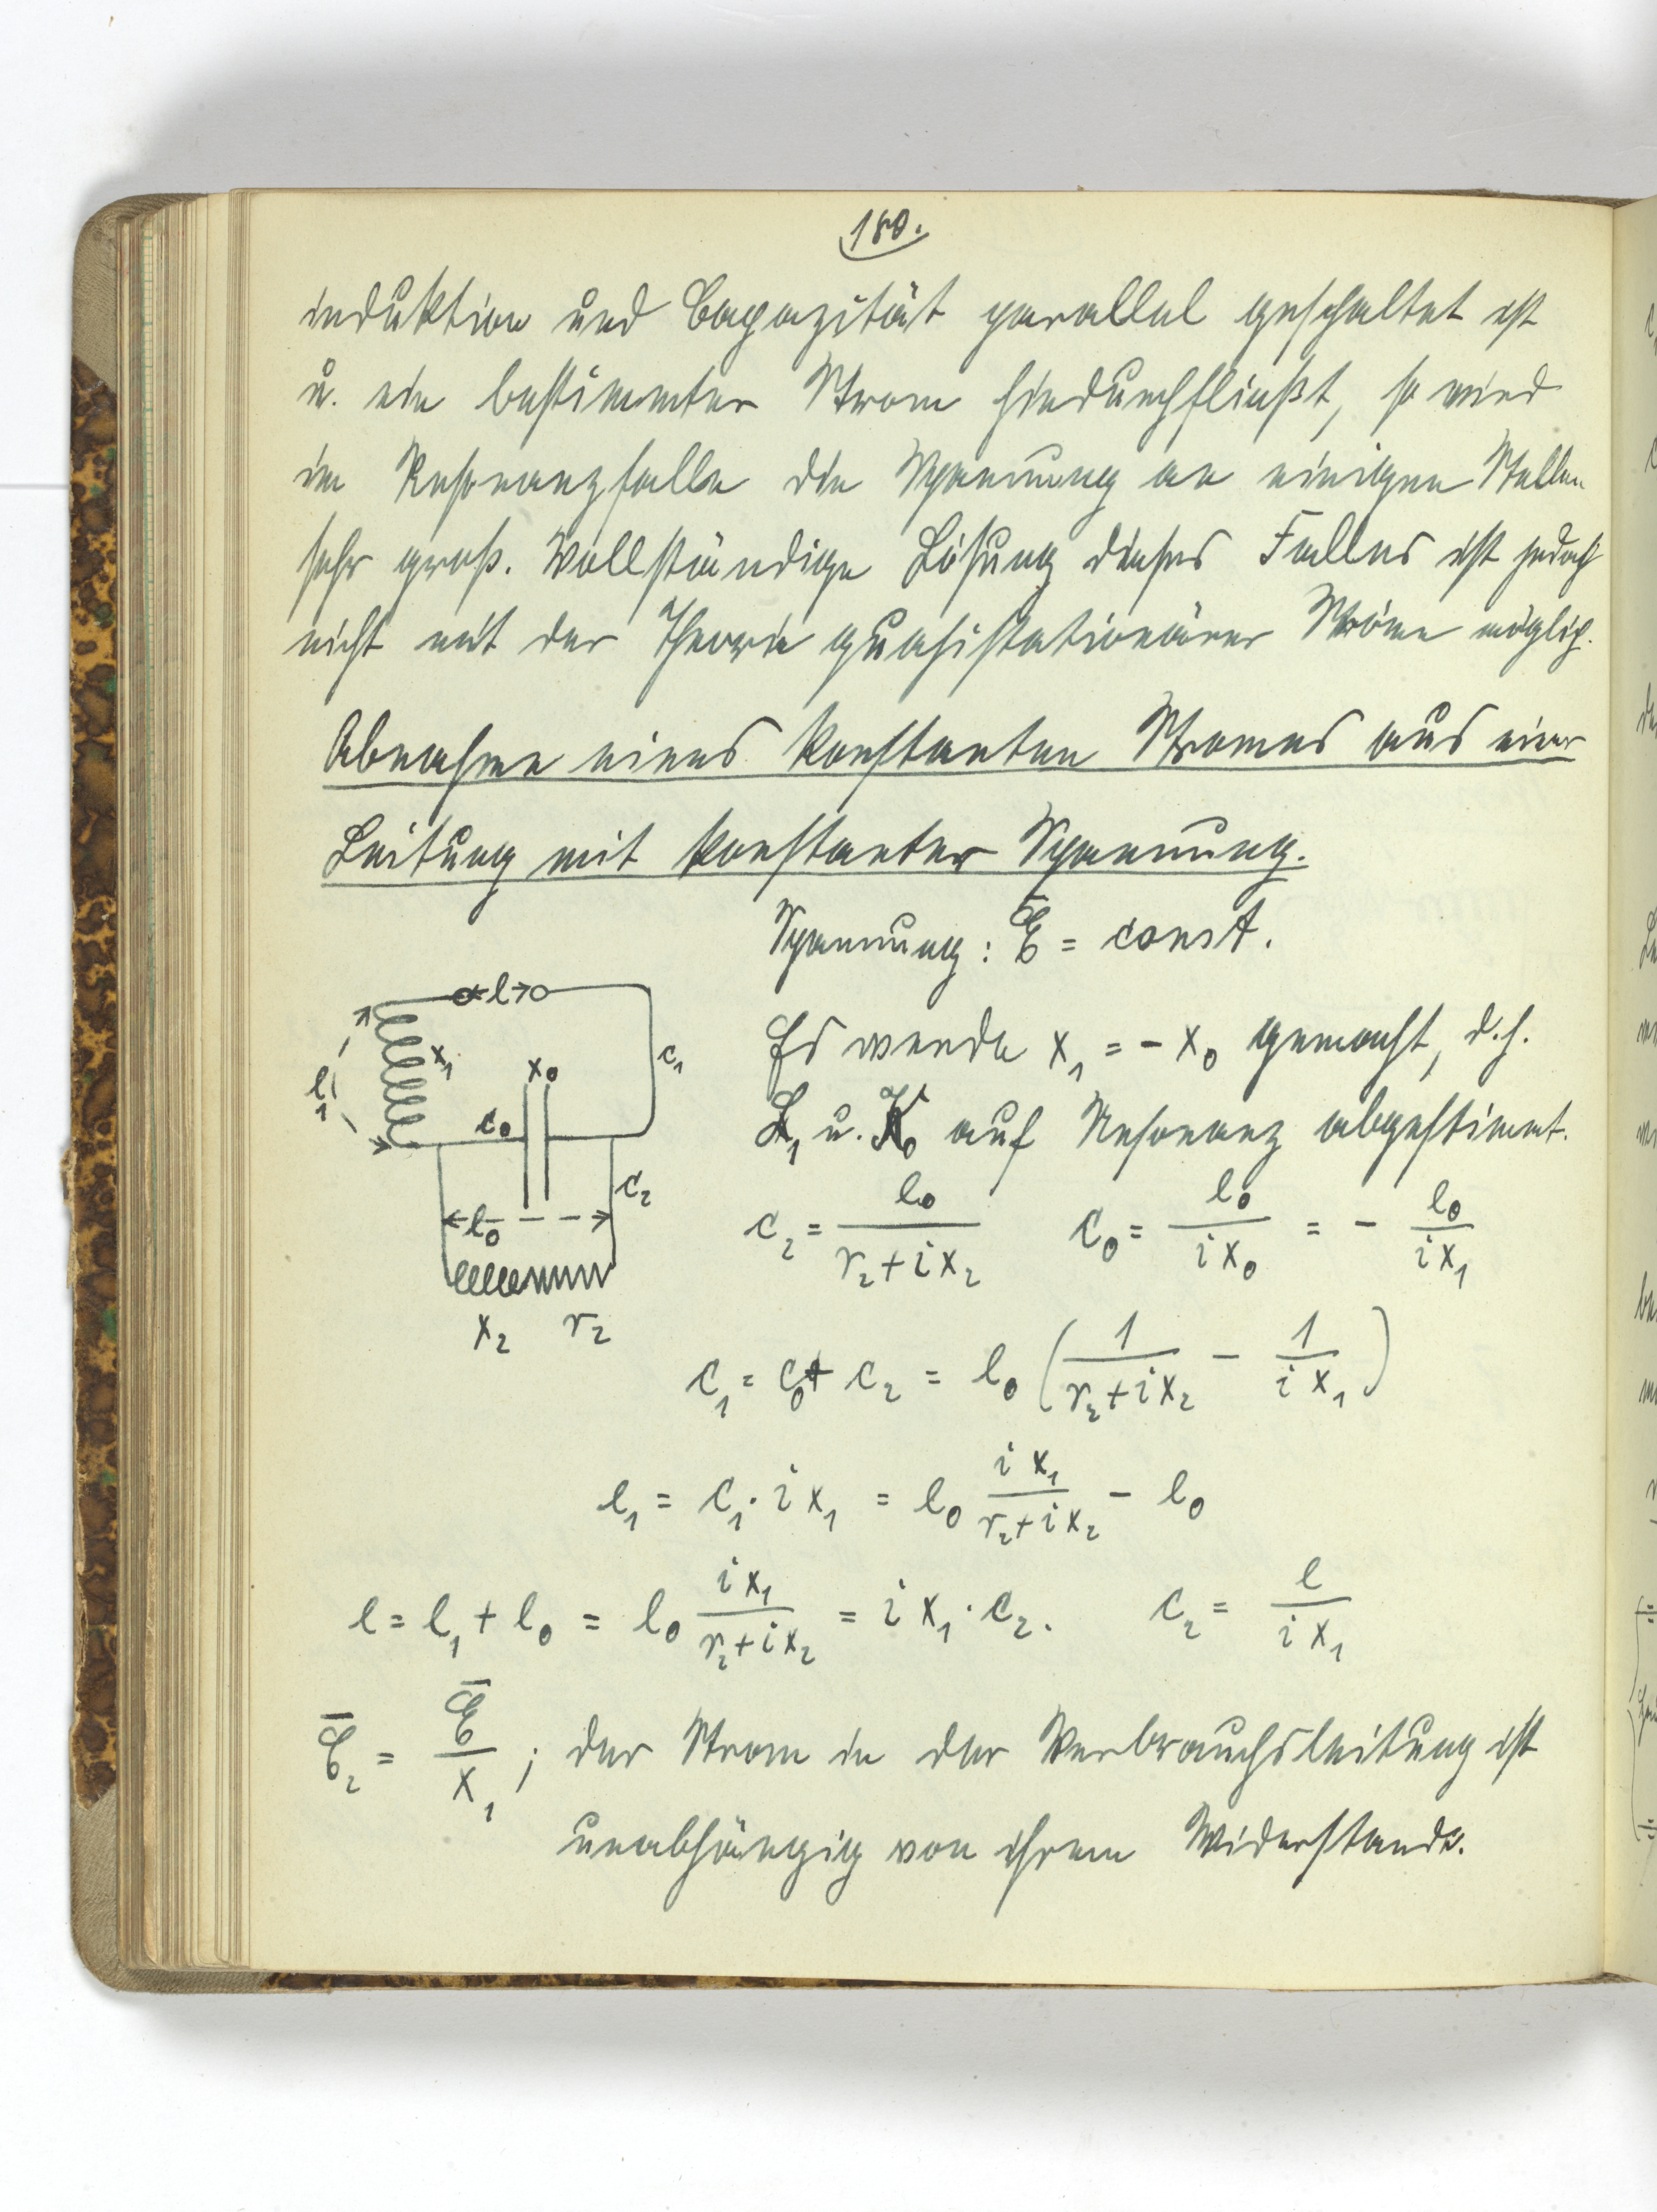 180.
induktion und Capazität parallel geschaltet ist
u. ein bestimmter Strom hindurchfließt, so wird
im Resonanzfalle die Spannung an einigen Stellen
sehr groß. Vollständige Lösung dieses Falles ist jedoch
nicht mit der Theorie quasistationärer Ströme möglich.
Abnahme eines konstanten Stromes aus einer
Leitung mit konstanter Spannung.
Spannung: Ē = const.
Es werde x₁ = - x₀ gemacht, d.h.
L₁ u. K₀ auf Resonanz abgestimmt.
e
e₁
x₁
x₀
c₀
c₁
c₂
e₀
x₂ r₂
c₂ = e₀/(r₂+ix₂) c₀ = e₀/(ix₀) = - e₀/(ix₁)
c₁ = c₀ + c₂ = e₀ (1/(r₂+ix₂) - 1/(ix₁))
e₁ = c₁·ix₁ = e₀ ix₁/(r₂+ix₂) - e₀
e = e₁ + e₀ = e₀ ix₁/(r₂+ix₂) = ix₁·c₂. c₂ = e/(ix₁)
C̄₂ = Ē/x₁ ; der Strom in der Verbrauchsleitung ist
unabhängig von ihrem Widerstande.